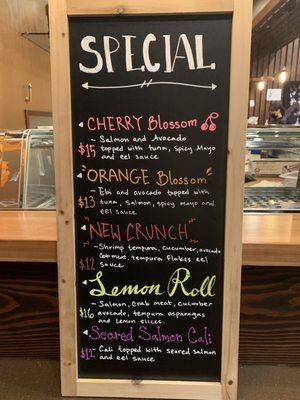 SPECIAL
CHERRY Blossom
- Salmon and Avocado
topped with tuna, Spicy Mayo
$15 and eel sauce
"ORANGE Blossom"
- Ebi and avocado topped with
$13 tuna, Salmon, spicy mayo and
eel sauce
NEW CRUNCH
- Shrimp tempura, cucumber, avocado
Crab meat, tempura flakes eel
$12 sauce
Lemon Roll
- Salmon, Crab meat, Cucumber
$16 avocado, tempura asparagus
and lemon slices.
Seared Salmon Cali
$11 - Cali topped with seared salmon
and eel sauce